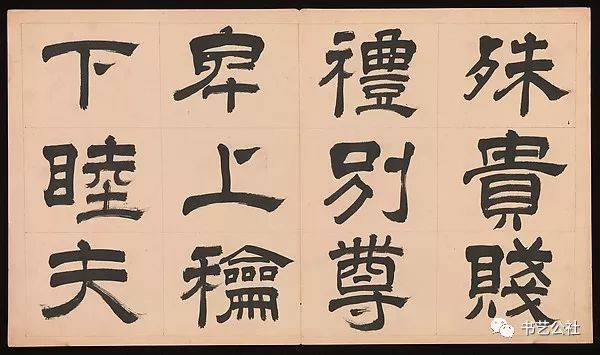 殊貴賤
禮別尊
卑上龢
下睦夫
书艺公社